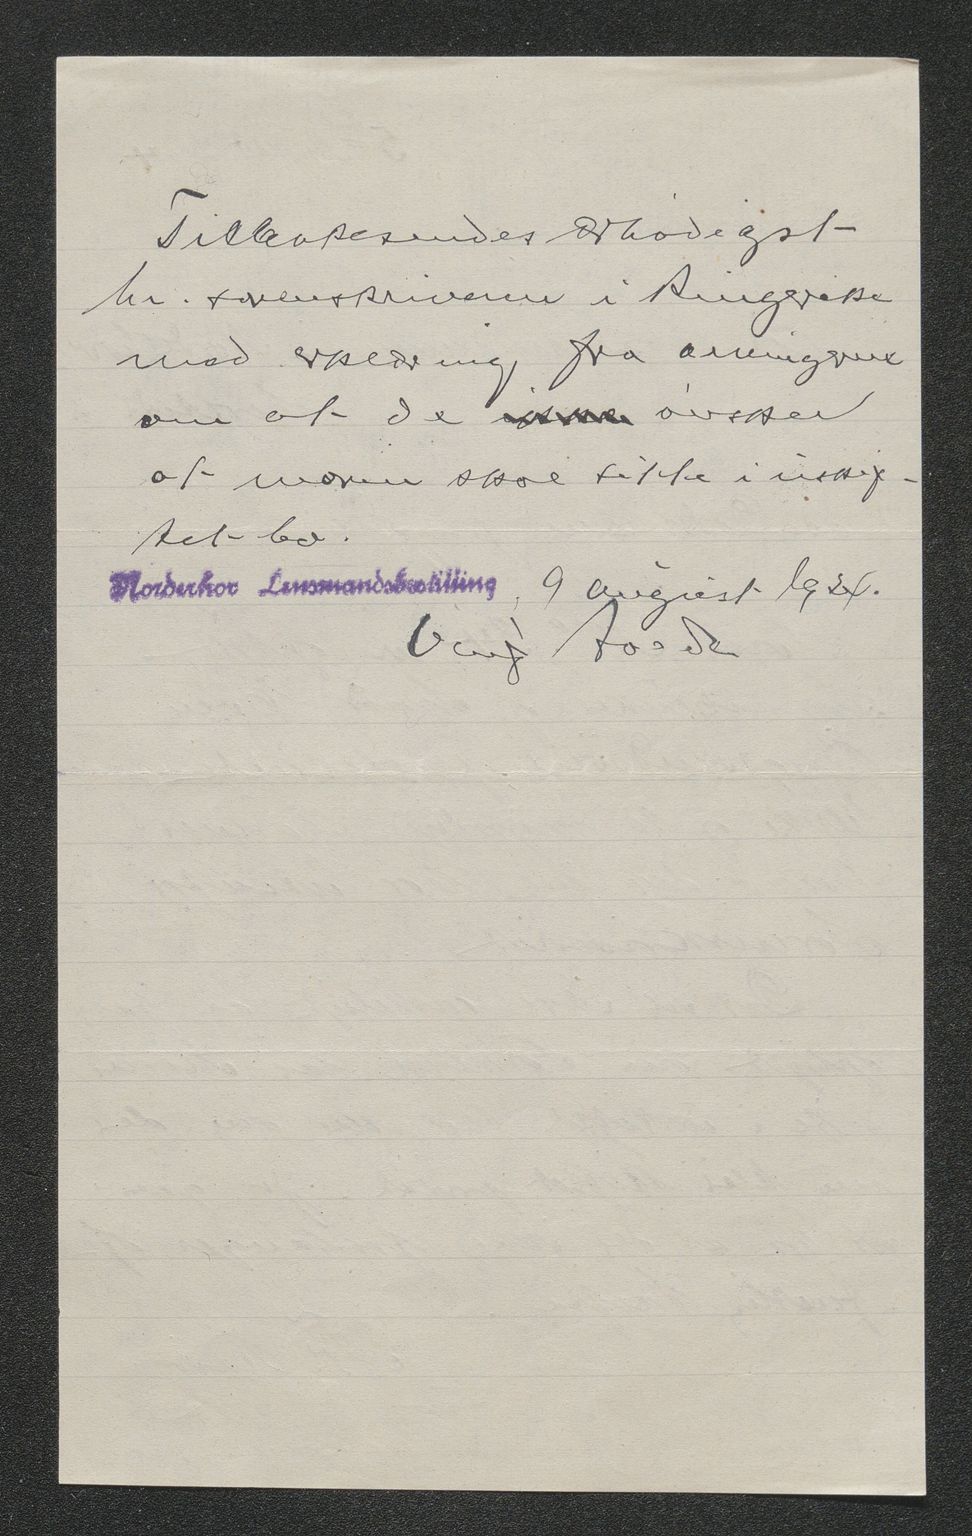 Tilbakesendes ærbødigst
hr. sorenskriveren i Ringerike
med erklæring fra arvingene
om at de ønsker
at moren skal sitte i uskif-
tet bo.
Norderhov Lensmandsbestilling, 9 august 1924.